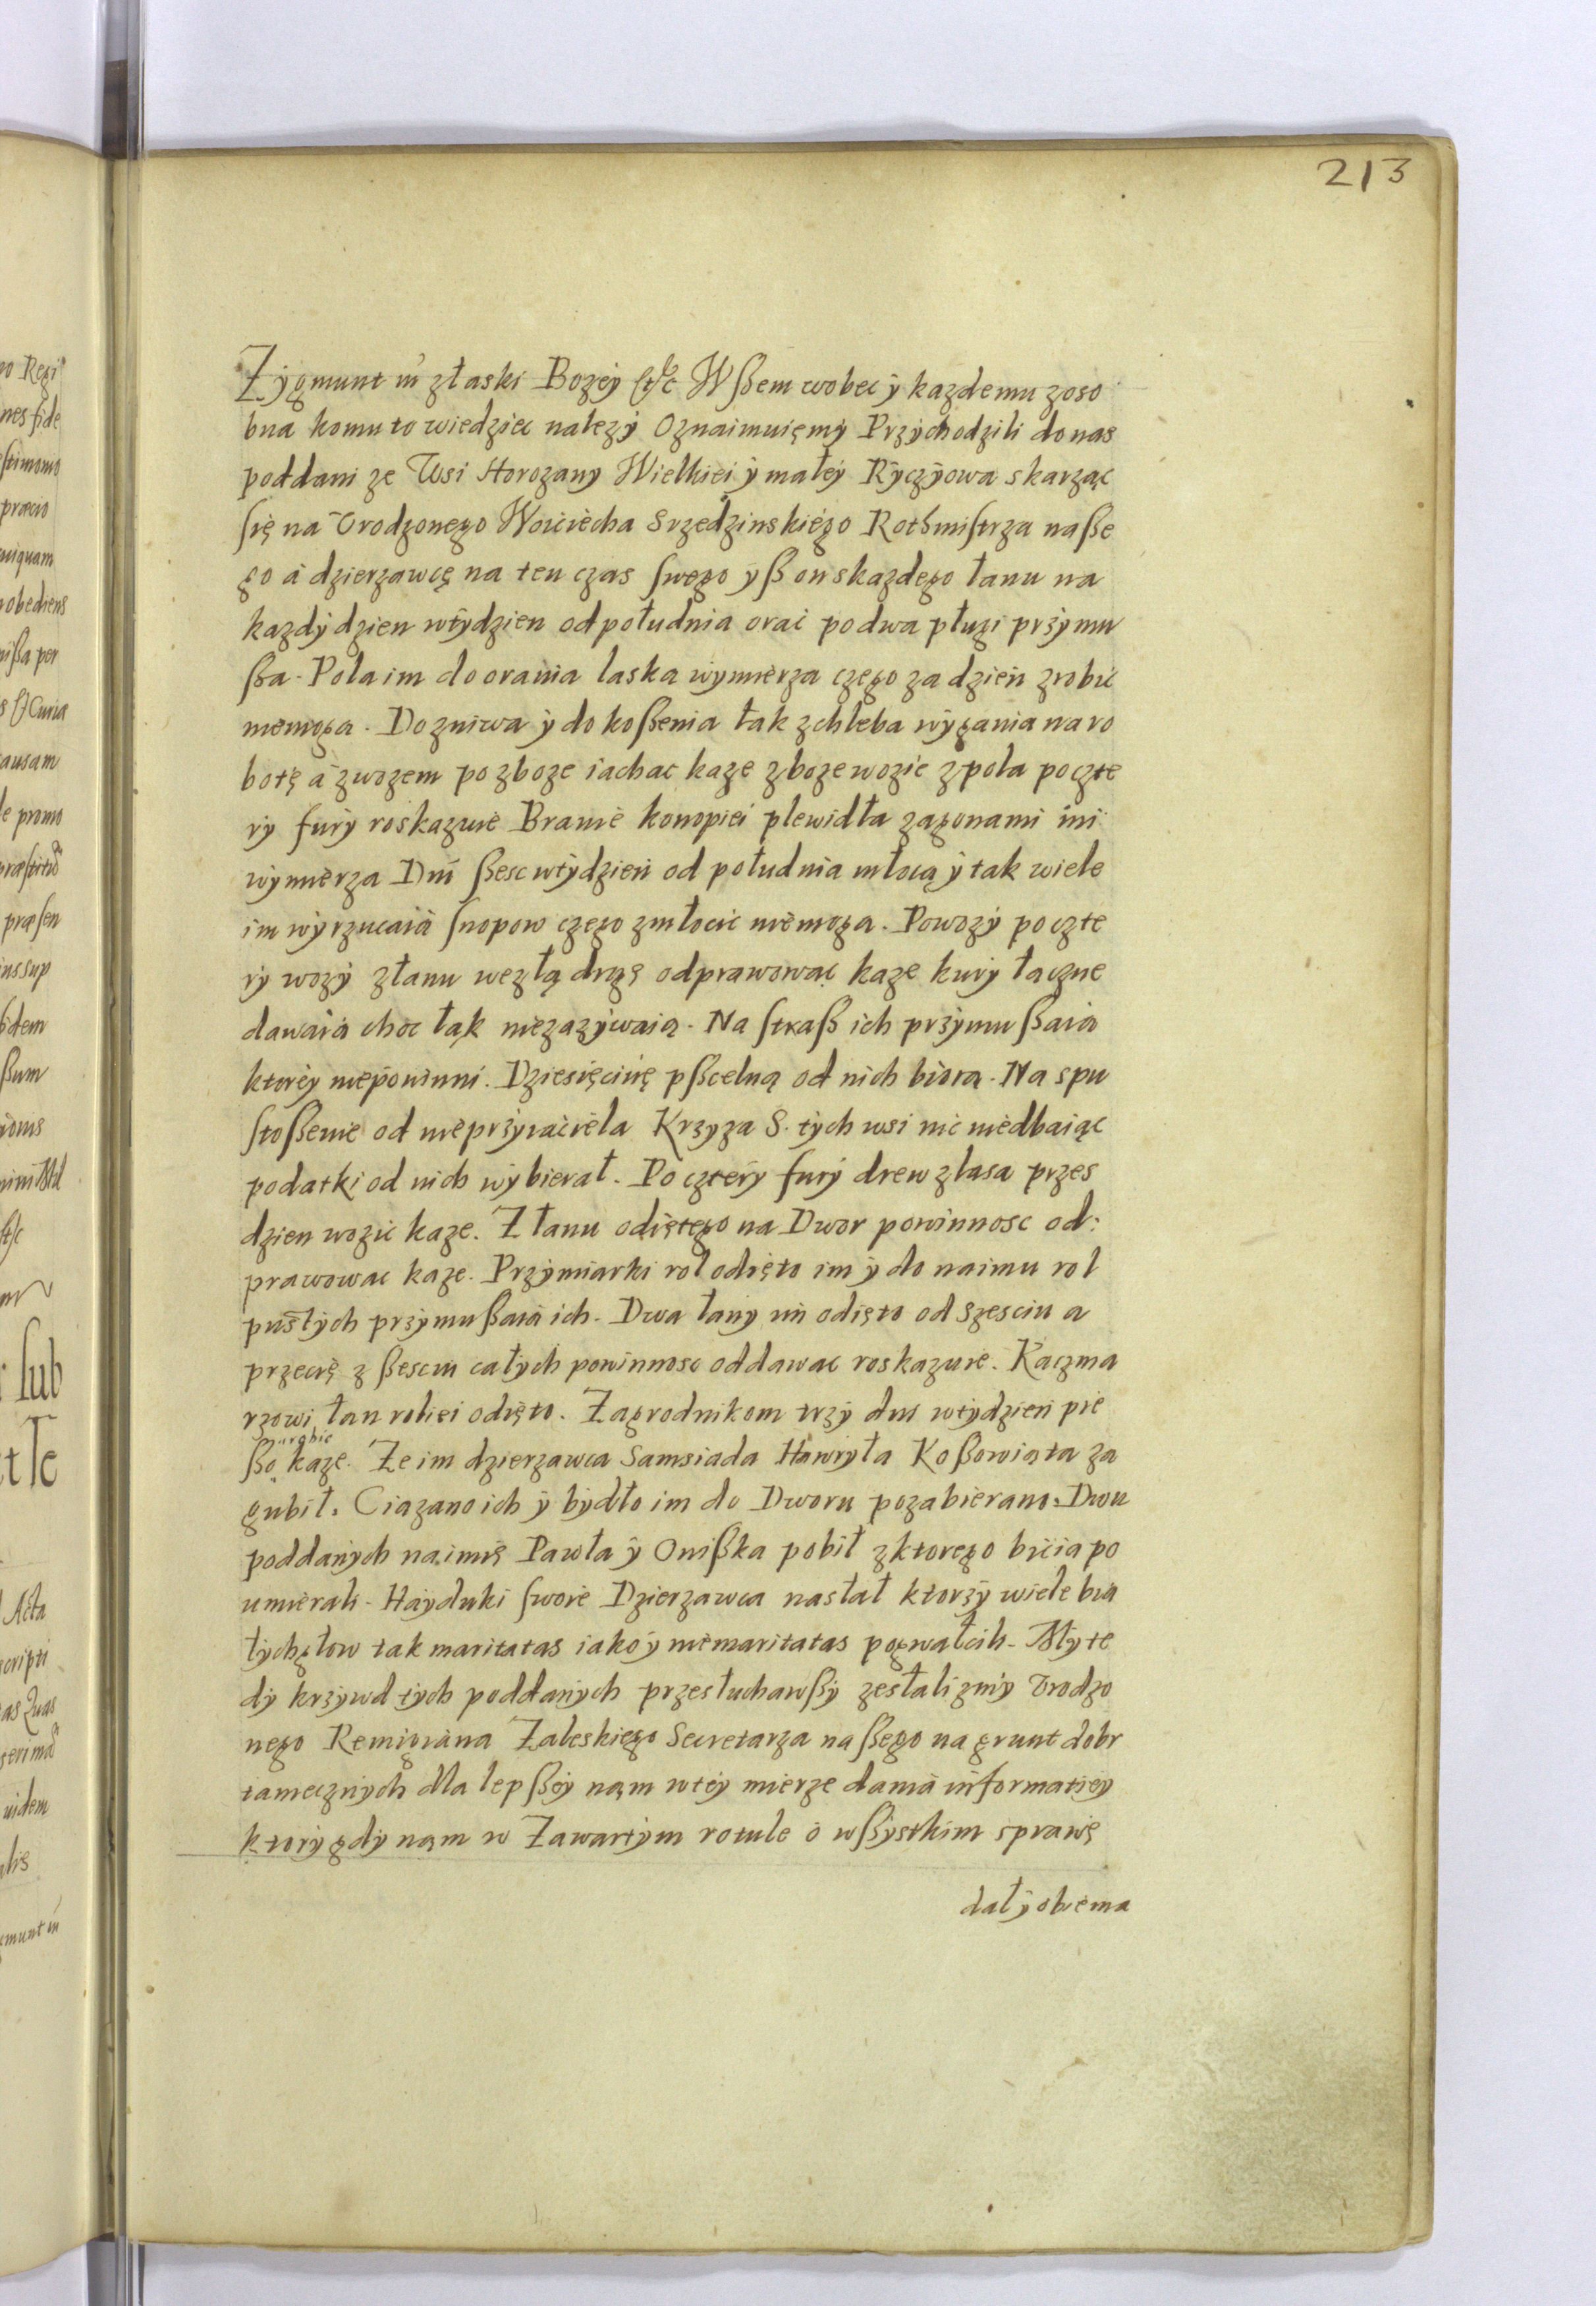 213
Zÿgmunt iii złaski Bozeÿ etc Wßem wobec ÿ kazdemu zoso
bna komu to wiedziec nalezÿ Oznaimuięmÿ Przÿchodzili do nas
poddani ze Wsi Horozany Wielkiei ÿ małeÿ Rÿczÿowa skarząc
się na Urodzonego Woiciecha Srzedzinskiego Rothmistrza naße
go a dzierzawcę na ten czas swego ÿß on skazdego łanu na
kazdÿ dzien wtÿdzien od południa orac po dwa pługi przÿmu
ßa. Pola im do orania laska wymierza czego za dzień zrobic
niemoga. Do zniwa ÿ do koßenia łak zchleba wÿgania na ro
botę a zwozem po zboze iachac kaze zboze wozic z pola po czte
rÿ furÿ roskazuie Branie konopiei plewidła zagonami im
wÿmierza Dni ßesc wtÿdzien od południa młocą ÿ tak wiele
im wÿrzucaia snopow czego zmłocic niemoga. Powozÿ po czte
rÿ wozÿ złanu wezłą drogę odprawowac kaze kurÿ łaczne
dawaia choc łąk niezazÿwaią. Na straß ich przÿmußaia
ktoreÿ niepowinni. Dziesięcinę pßczelną od nich biorą. Na spu
stoßenie od nieprzÿiaciela Krzyza S. tÿch wsi nic niedbaiąc
podatki od nich wÿbierał. Po czterÿ furÿ drew zlasa przes
dzien wozic kaze. Z łanu odiętego na Dwor powinnosc od:
prawowac kaze. Przÿmiarki rol odięto im ÿ do naimu rol
pustÿch przymußaia ich. Dwa łany im odięto od szesciu a
przecię z ßesciu całych powinnosc oddawac roskazuie. Kaczma
rzowi łan roliei odięto. Zagrodnikom trzÿ dni wtÿdzien pie
ßo urabic kaze. Ze im dzierzawca Samsiada Hawryła Koßowiąta za
gubił. Ciazano ich ÿ bÿdło im do Dworu pozabierano. Dwu
poddanÿch na imię Pawła ÿ Onißka pobił zktorego bicia po
umierali. Haÿduki swoie Dzierzawca nasłał ktorzÿ wiele bia
łychgłow tak maritatas iako ÿ niemaritatas pogwałcili. Mÿ te
dÿ krzÿwd tÿch poddanÿch przesłuchawßÿ zesłalizmÿ Urodzo
nego Remigiana Zaleskiego Secretarza naßego na grunt dobr
tamecznÿch dla lepßeÿ nąm wteÿ mierze dania informatieÿ
ktorÿ gdÿ nąm w Zawartÿm rotule o wßÿstkim sprawę
dał ÿ obiema